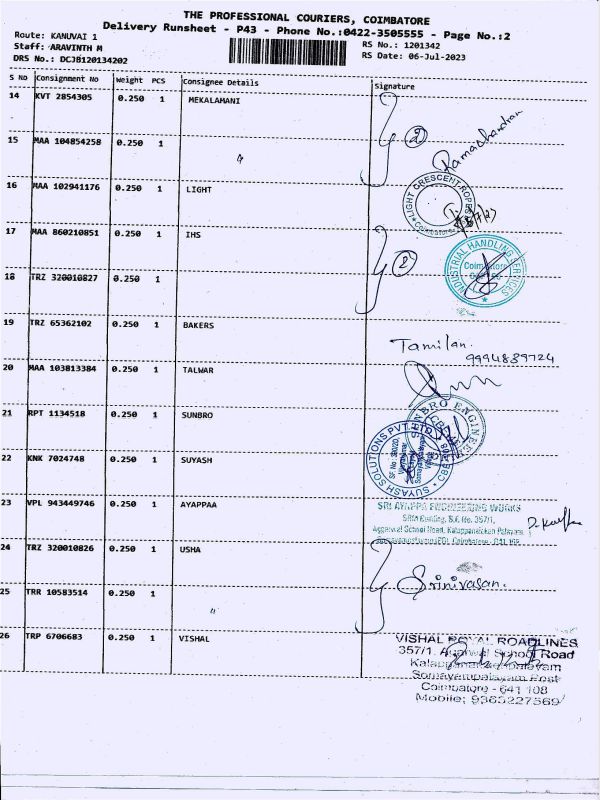 THE PROFESSIONAL COURIERS, COIMBATORE
Delivery Runsheet - P43 - Phone No.:0422-3505555 - Page No.:2
Route: KANUVAI 1
Staff: ARAVINTH M
DRS No.: DCJB120134202
RS No.: 1201342
RS Date: 06-Jul-2023
S No Consignment No Weight PCS Consignee Details Signature
14 KVT 2854305 0.250 1 MEKALAMANI
2 Ramachandran
15 MAA 104854258 0.250 1 "
16 MAA 102941176 0.250 1 LIGHT
LIGHT CRESCENT ROPES
Coimbatore
17 MAA 860210851 0.250 1 IHS
2
INDUSTRIAL HANDLING SERVICES
Coimbatore
18 TRZ 320010827 0.250 1
19 TRZ 65362102 0.250 1 BAKERS
Tamilan.
9994889724
20 MAA 103813384 0.250 1 TALWAR
21 RPT 1134518 0.250 1 SUNBRO
22 KNK 7024748 0.250 1 SUYASH
SUYASH SOLUTIONS PVT. LTD.
23 VPL 943449746 0.250 1 AYAPPAA
SRI AYAPPA ENGINEERING WORKS
24 TRZ 320010826 0.250 1 USHA
Srinivasan.
25 TRR 10583514 0.250 1 "
26 TRP 6706683 0.250 1 VISHAL
VISHAL ROYAL ROADLINES
357/1. Agarwal School Road
Somayampalayam Post
Coimbatore - 641 108
Mobile; 9363227569